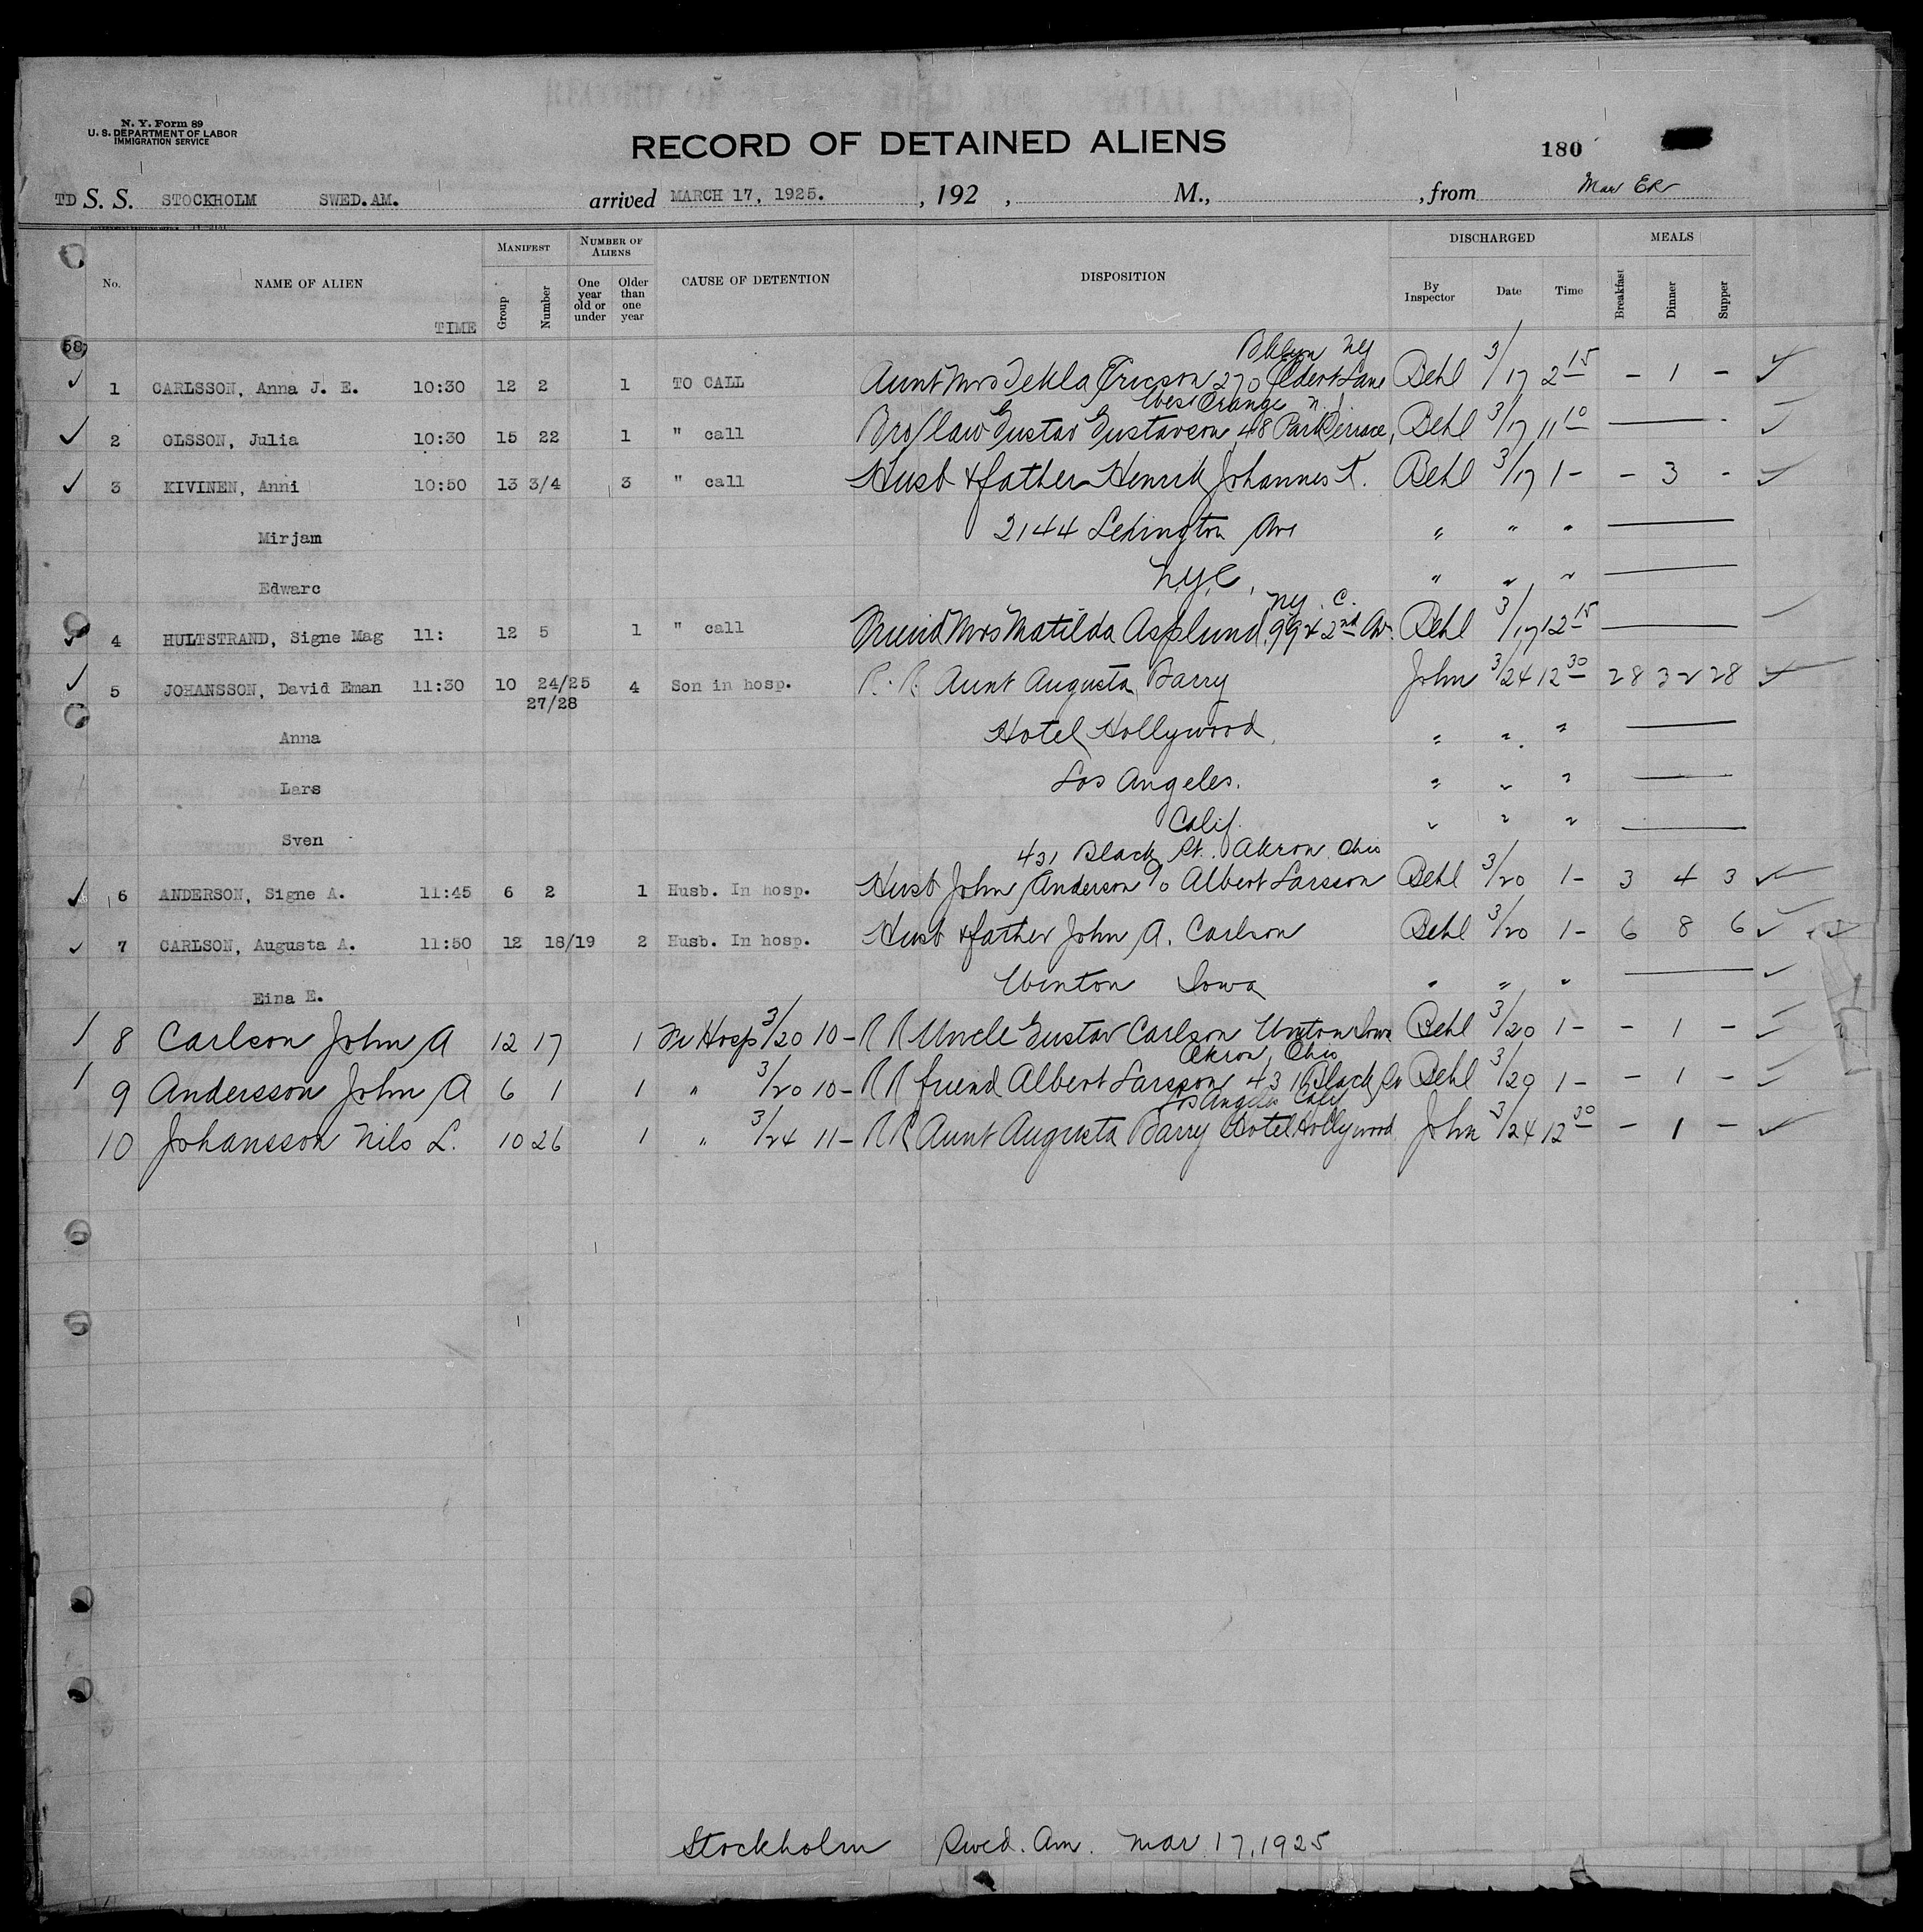 N. Y. Form 89
U. S. DEPARTMENT OF LABOR
IMMIGRATION SERVICE
RECORD OF DETAINED ALIENS
180
TD S. S. STOCKHOLM SWED. AM. arrived MARCH 17, 1925. , 192 , M., , from
No. NAME OF ALIEN TIME MANIFEST Group Number NUMBER OF ALIENS One year old or under Older than one year CAUSE OF DETENTION DISPOSITION DISCHARGED By Inspector Date Time MEALS Breakfast Dinner Supper
58
Bklyn NY
1 CARLSSON, Anna J. E. 10:30 12 2 1 TO CALL Aunt Mrs Tekla Ericson 270 Eldert Lane Behl 3/17 2 15 - 1 -
West Orange N.J.
2 OLSSON, Julia 10:30 15 22 1 " call Bro/law Gustav Gustavson, 48 Park Terrace, Behl 3/17 11 10
3 KIVINEN, Anni 10:50 13 3/4 3 " call Husb & father Henrik Johannes K. Behl 3/17 1- - 3 -
Mirjam 2144 Lexington Ave " " "
Edwarc N.Y.C. " " "
NY. C.
4 HULTSTRAND, Signe Mag 11: 12 5 1 " call Friend Mrs Matilda Asplund, 994 2nd Av. Behl 3/17 12 15
5 JOHANSSON, David Eman 11:30 10 24/25 27/28 4 Son in hosp. R. R. Aunt Augusta Barry John 3/24 12 30 28 32 28
Anna Hotel Hollywood, " " "
Lars Los Angeles. " " "
Sven Calif. " " "
431 Black St. Akron Ohio
6 ANDERSON, Signe A. 11:45 6 2 1 Husb. In hosp. Husb John Anderson c/o Albert Larsson Behl 3/20 1- 3 4 3
7 CARLSON, Augusta A. 11:50 12 18/19 2 Husb. In hosp. Husb & father John A. Carlson Behl 3/20 1- 6 8 6
Eina E. Winton Iowa " " "
8 Carlson John A 12 17 1 In Hosp 3/20 10- R R Uncle Gustav Carlson Winton Iowa Behl 3/20 1- - 1 -
Akron, Ohio
9 Andersson John A 6 1 1 " 3/20 10- R R friend Albert Larsson 431 Black St Behl 3/20 1- - 1 -
Los Angeles Calif
10 Johansson Nils L. 10 26 1 " 3/24 11- R R Aunt Augusta Barry Hotel Hollywood John 3/24 12 30 - 1 -
Stockholm Swed. Am. Mar 17, 1925